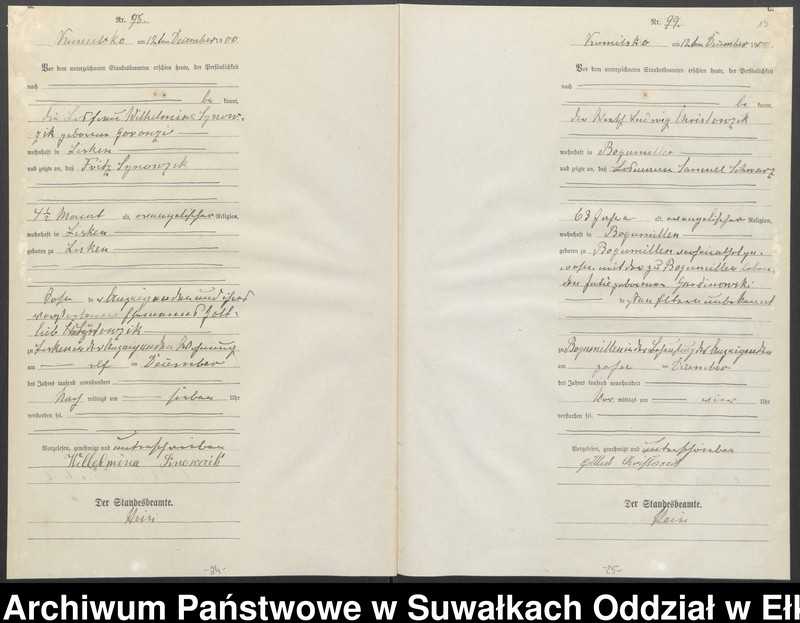 Nr. 98.
Krumilsko am 12ten December 1900.
Vor dem unterzeichneten Standesbeamten erschien heute, der Persönlichkeit
nach
be kannt,
die Losfrau Wilhelmine Synow-
zik geborene
wohnhaft in Lisken
und zeigte an, daß Fritz Synowzik
4½ Monat alt, evangelischer Religion,
wohnhaft in Lisken
geboren zu Lisken
Sohn der Anzeigenden und ihres
verstorbenen Ehemannes Gott-
lieb
zu Lisken in der Anzeigenden Wohnung
am elf ten December
des Jahres tausend neunhundert
Nach mittags um sieben Uhr
verstorben sei.
Vorgelesen, genehmigt und unterschrieben
Wilhelmina Sinowzik
Der Standesbeamte.
-24-
Nr. 99.
13
Krumilsko am 12ten December 1900.
Vor dem unterzeichneten Standesbeamten erschien heute, der Persönlichkeit
nach
be kannt,
der Wirth Ludwig Christowzik
wohnhaft in Bogumillen
und zeigte an, daß Losmann Samuel Schwarz
63 Jahre alt, evangelischer Religion,
wohnhaft in Bogumillen
geboren zu Bogumillen verheirathet ge-
wesen mit der zu Bogumillen leben-
den Julie geborenen
Eltern unbekannt
zu Bogumillen in der Behausung des Anzeigenden
am zehn ten December
des Jahres tausend neunhundert
Vor mittags um vier Uhr
verstorben sei.
Vorgelesen, genehmigt und unterschrieben
Der Standesbeamte.
-25-
Archiwum Państwowe w Suwałkach Oddział w Ełk